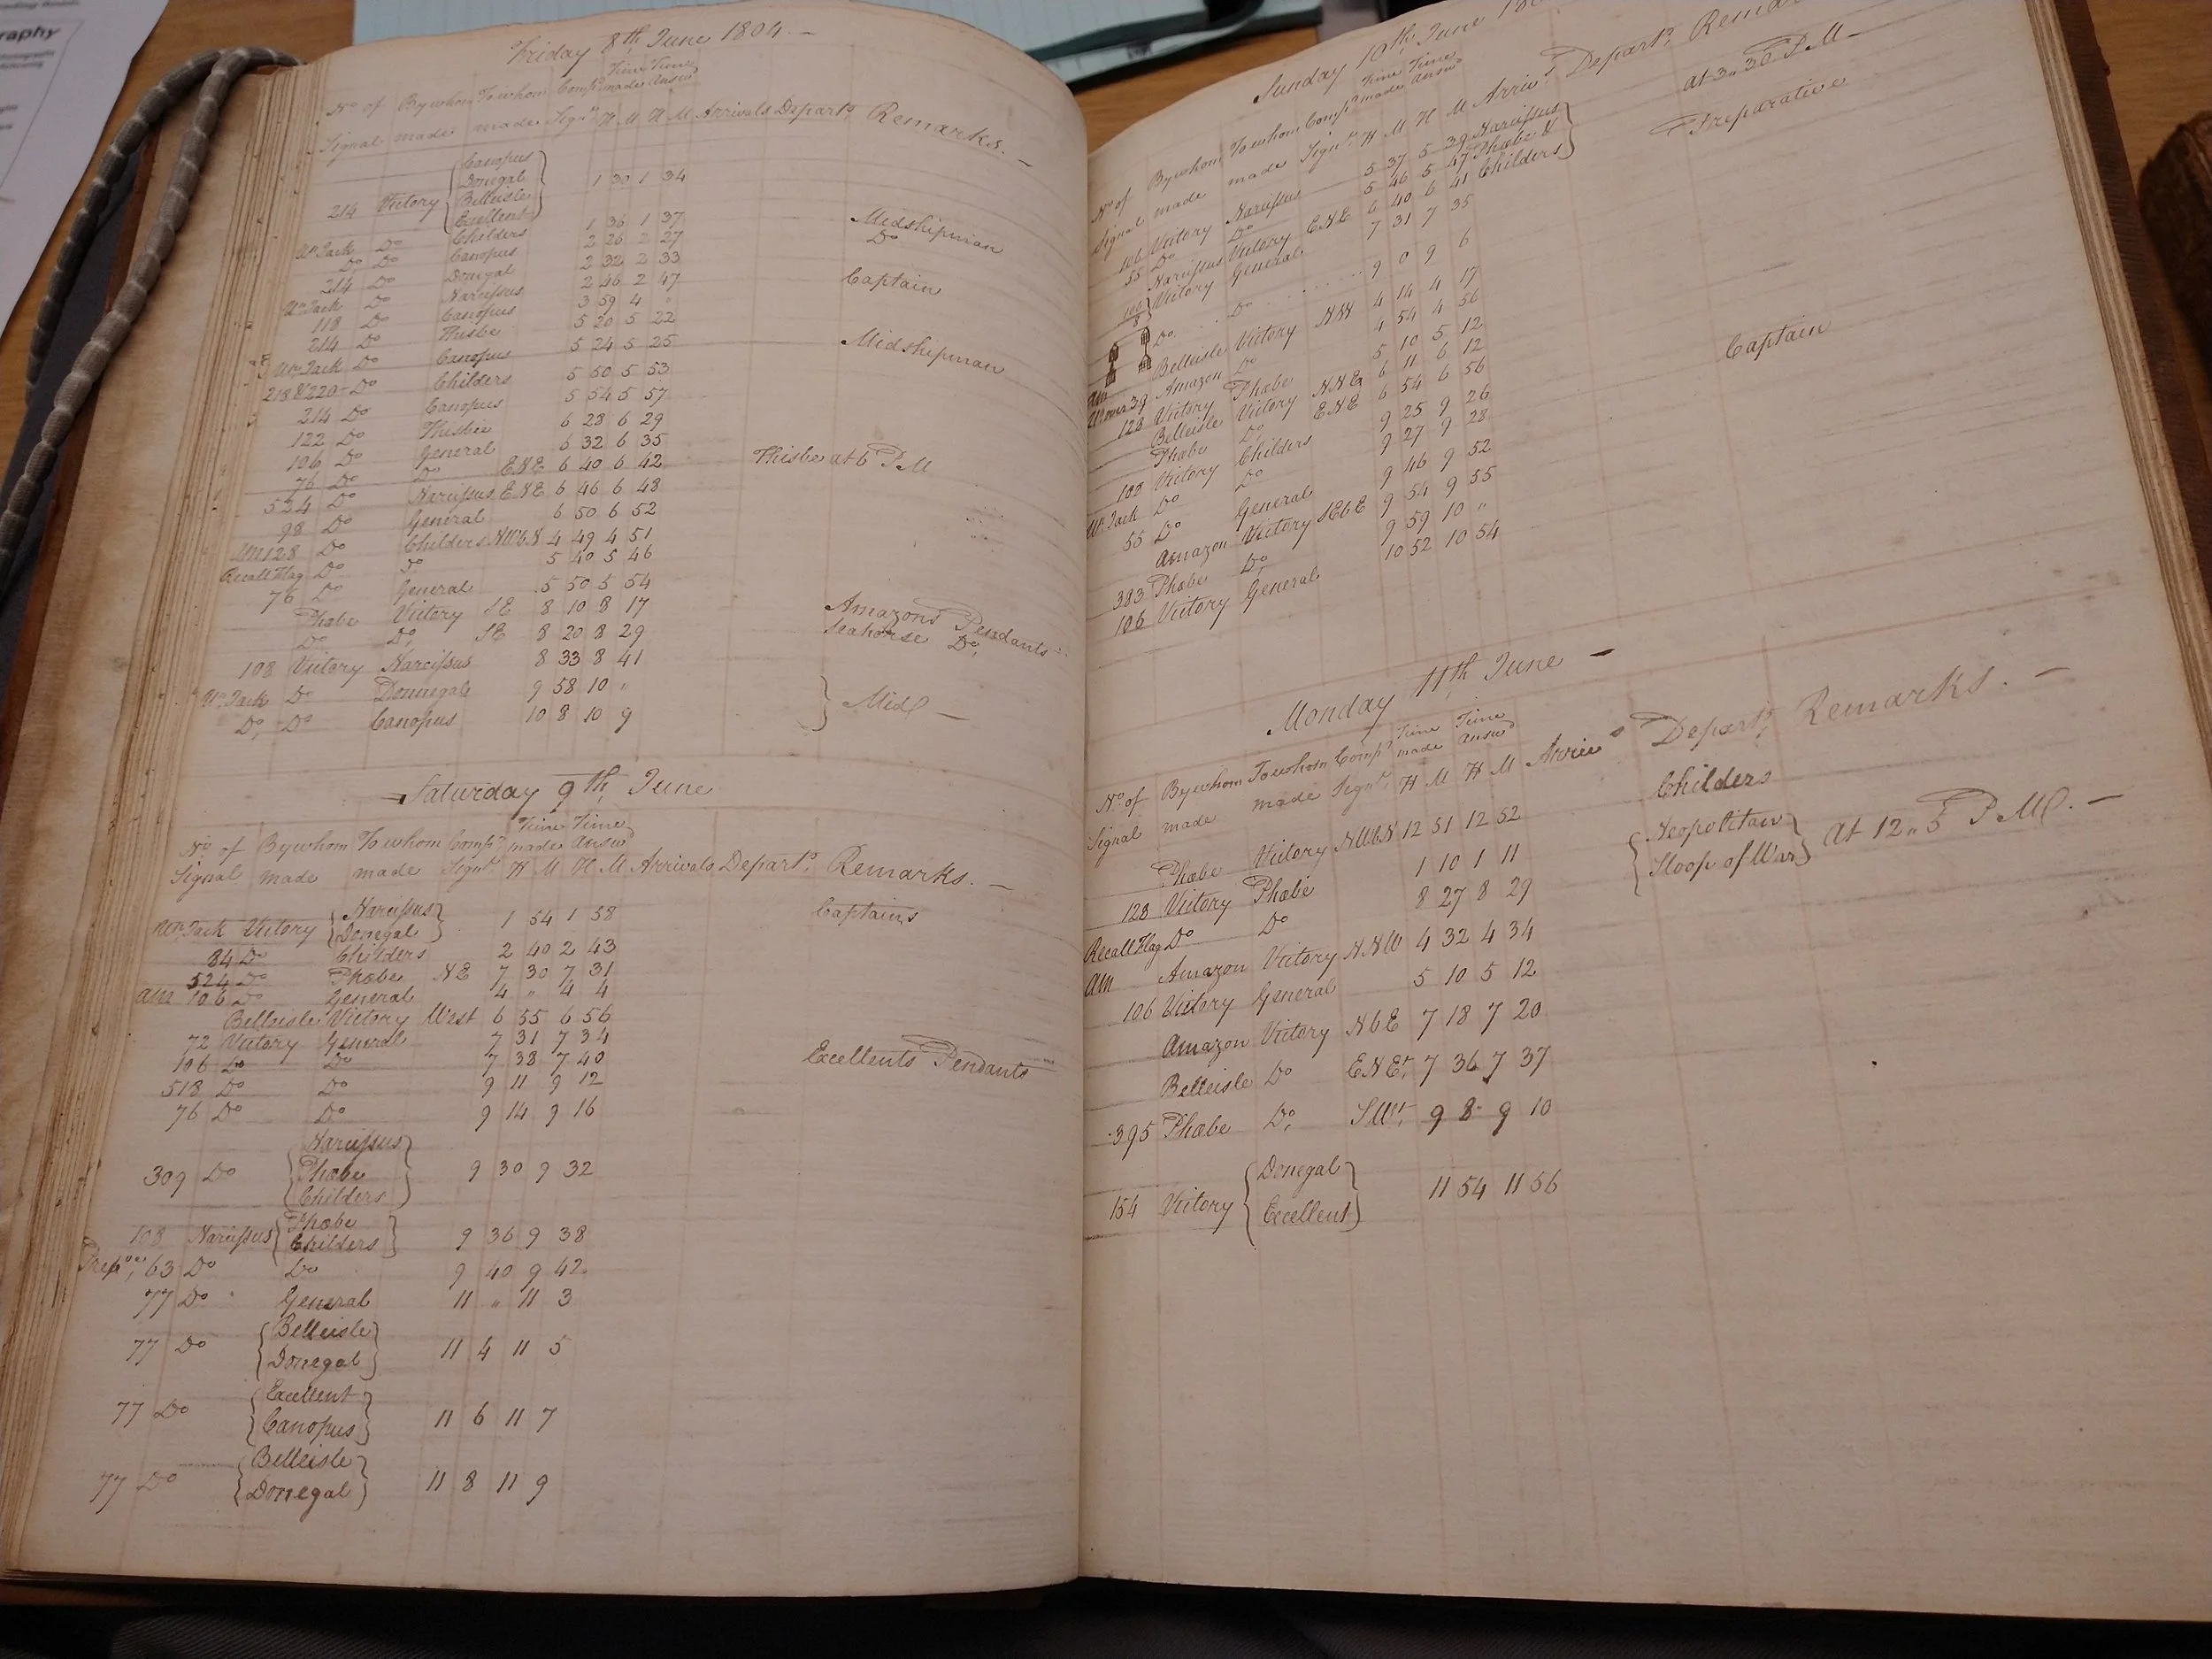 raphy
Friday 8th June 1804. —
No of By whom To whom Comps Time made Time Answ
Signal made made Signl H M H M Arrivals Depart. Remarks. —
Canopus
Donegal
214 Victory Belleisle 1 30 1 34
Excellent
Un Jack Do Childers 1 36 1 37 Midshipman
Do Do Canopus 2 26 2 27 Do
214 Do Donegal 2 32 2 33
Un Jack Do Narcissus 2 46 2 47 Captain
118 Do Canopus 3 59 4 "
214 Do Thisbe 5 20 5 22
Un Jack Do Canopus 5 24 5 25 Midshipman
218 & 220 Do Childers 5 50 5 53
214 Do Canopus 5 54 5 57
122 Do Thisbe 6 28 6 29
106 Do General 6 32 6 35
76 Do Do ENE 6 40 6 42 Thisbe at 6 PM
524 Do Narcissus ENE 6 46 6 48
98 Do General 6 50 6 52
AM 128 Do Childers NWbN 4 49 4 51
Recall Flag Do Do 5 40 5 46
76 Do General 5 50 5 54
Phœbe Victory SE 8 10 8 17 Amazons Pendants
Do Do SE 8 20 8 29 Seahorse Do
108 Victory Narcissus 8 33 8 41
Un Jack Do Donnegal 9 58 10 "
Do Do Canopus 10 8 10 9 Mid —
Saturday 9th June
No of By whom To whom Comps Time made Time Answ
Signal made made Signl H M H M Arrivals Depart. Remarks. —
Un Jack Victory Narcissus Donegal 1 54 1 58 Captains
84 Do Childers 2 40 2 43
524 Do Phœbe NE 7 30 7 31
AM 106 Do General 4 " 4 4
Belleisle Victory West 6 55 6 56
72 Victory General 7 31 7 34
106 Do Do 7 38 7 40 Excellents Pendants
518 Do Do 9 11 9 12
76 Do Do 9 14 9 16
Narcissus
309 Do Phœbe 9 30 9 32
Childers
108 Narcissus Phœbe Childers 9 36 9 38
Prepve 63 Do Do 9 40 9 42
77 Do General 11 " 11 3
77 Do Belleisle Donegal 11 4 11 5
77 Do Excellent Canopus 11 6 11 7
77 Do Belleisle Donegal 11 8 11 9
Sunday 10th June
No of By whom To whom Comps Time made Time Answ
Signal made made Signl H M H M Arrivs Depart. Remarks
106 Victory Narcissus 5 37 5 39 Narcissus at 3 " 30 PM —
55 Do Do 5 46 5 47 Phœbe &
Narcissus Victory ENE 6 40 6 41 Childers Preparative
Victory General 7 31 7 35
Do Do 9 0 9 6
AM Belleisle Victory NW 4 14 4 17
39 Amazon Do 4 54 4 56
128 Victory Phœbe 5 10 5 12
Belleisle Victory NNE 6 11 6 12
Phœbe Do ENE 6 54 6 56
108 Victory Childers 9 25 9 26
Un Jack Do Do 9 27 9 28 Captain
55 Do General 9 46 9 52
Amazon Victory SEbE 9 54 9 55
383 Phœbe Do 9 59 10 "
106 Victory General 10 52 10 54
Monday 11th June —
No of By whom To whom Comps Time made Time Answ
Signal made made Signl H M H M Arrivs Depart. Remarks. —
Phœbe Victory NWbN 12 51 12 52 Childers
128 Victory Phœbe 1 10 1 11 Neopolitan Sloop of War At 12 " 5 PM. —
Recall Flag Do Do 8 27 8 29
AM Amazon Victory NNW 4 32 4 34
106 Victory General 5 10 5 12
Amazon Victory NbE 7 18 7 20
Belleisle Do ENEt 7 36 7 37
395 Phœbe Do SWt 9 8 9 10
154 Victory Donegal Excellent 11 54 11 56